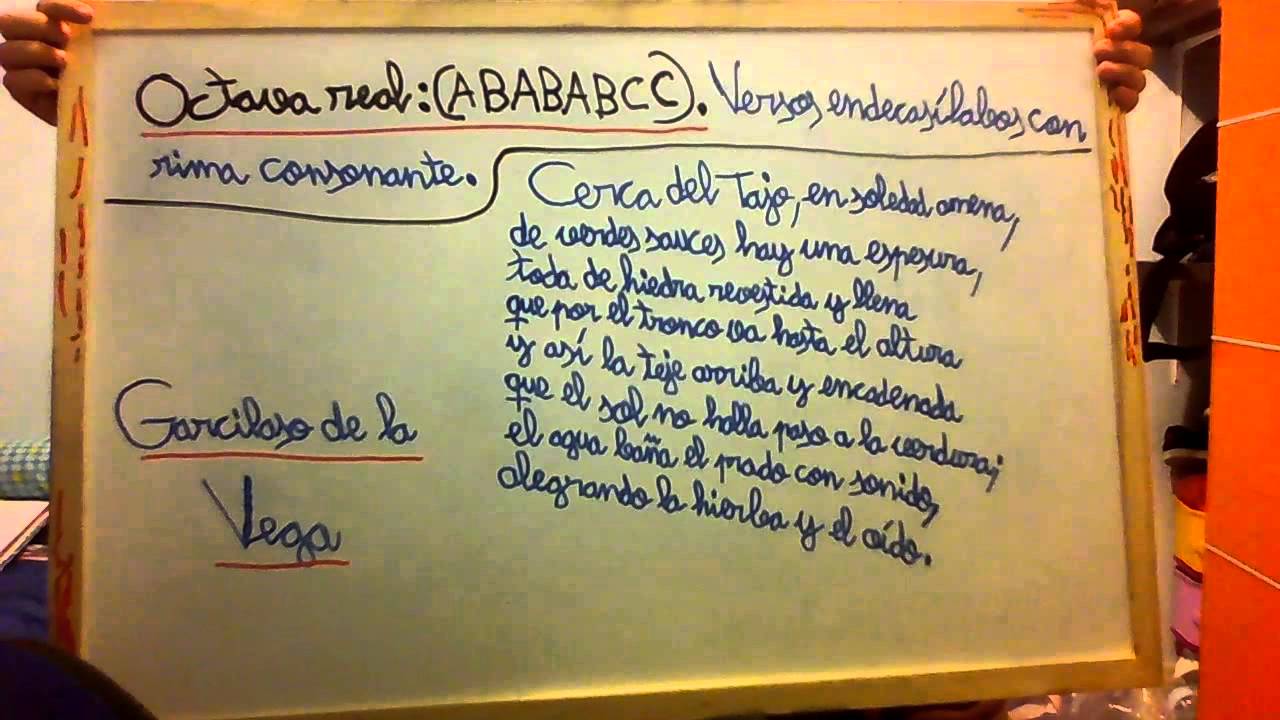 Octava real: (ABABABCC). Versos endecasílabos con
rima consonante.
Cerca del Tajo, en soledad amena,
de verdes sauces hay una espesura,
toda de hiedra revestida y llena
que por el tronco va hasta el altura
y así la teje arriba y encadenada
que el sol no halla paso a la verdura;
el agua baña el prado con sonido,
alegrando la hierba y el oído.
Garcilaso de la
Vega